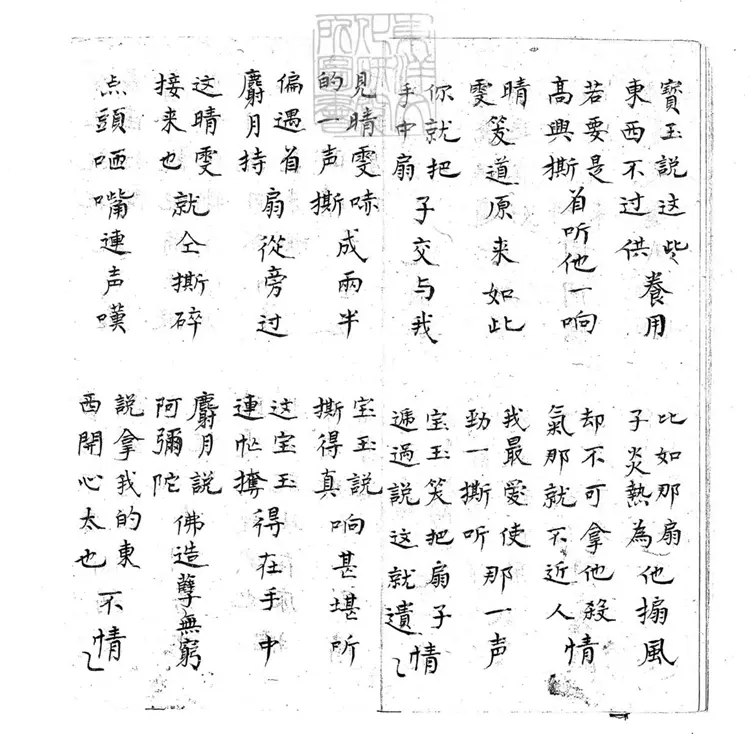 寳玉說这些東西不过供養用
比如那扇子炎熱為他搧風
若要是高興撕着听他一响
却不可拿他殺氣那就不近人情
晴雯笑道原来如此
我最愛使勁一撕听那一声
你就把手中扇子交与我
宝玉笑把扇子遞過說这就遺情
見晴雯哧的一声撕成兩半
宝玉說撕得真响甚堪听
偏遇着麝月持扇從旁过
这宝玉連忙奪得在手中
这晴雯接来也就仝撕碎
麝月說阿彌陀佛造孽無窮
点頭咂嘴連声嘆
說拿我的東西開心太也不情